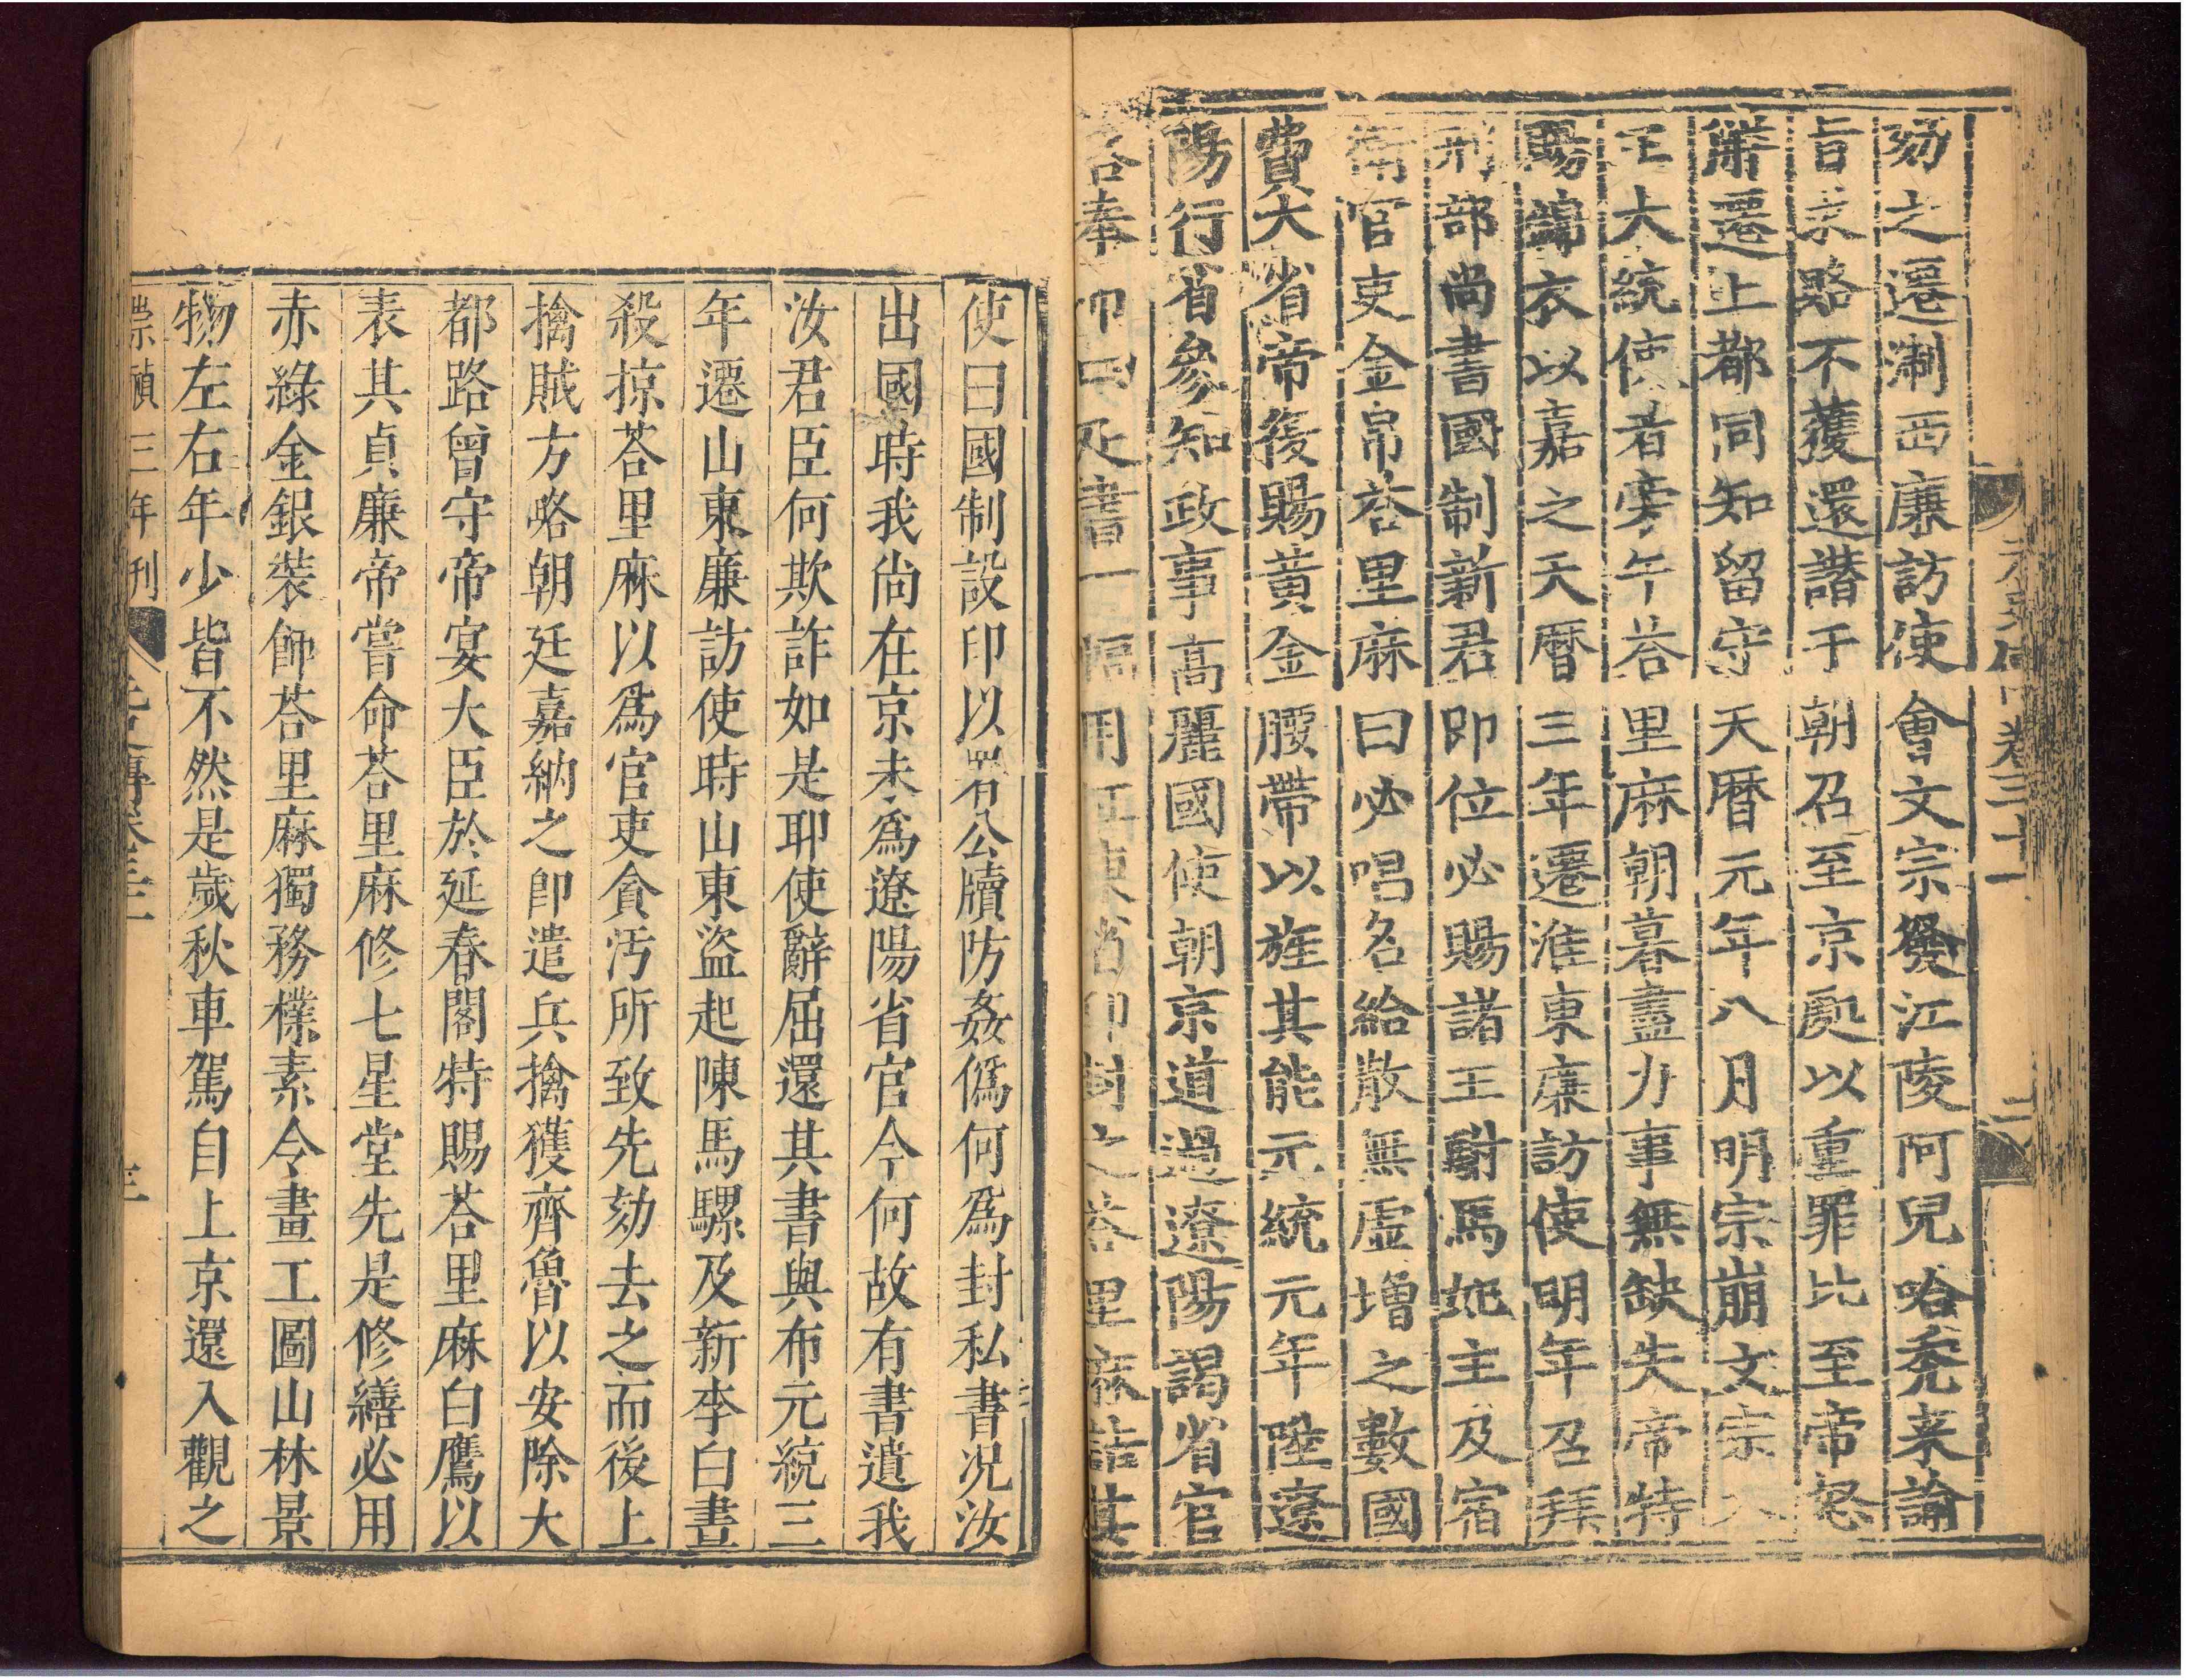 元史傳卷三十一
二
劾之遷淛西廉訪使會文宗發江陵阿兒哈禿来諭
旨求賂不獲還譖于朝召至京處以重罪比至帝怒
解遷上都同知留守天曆元年八月明宗崩文宗入
正大統使者旁午荅里麻朝暮盡力事無缺失帝特
賜錦衣以嘉之天曆三年遷淮東廉訪使明年召拜
刑部尚書國制新君即位必賜諸王駙馬妃主及宿
衛官吏金帛荅里麻曰必唱名給散無虛增之數國
費大省帝復賜黃金腰帶以旌其能元統元年陞遼
陽行省參知政事高麗國使朝京道過遼陽謁省官
各奉布四疋書一幅用征東省印封之荅里麻詰其
使曰國制設印以署公牘防姦僞何爲封私書况汝
出國時我尚在京未爲遼陽省官今何故有書遺我
汝君臣何欺詐如是耶使辭屈還其書與布元統三
年遷山東廉訪使時山東盜起陳馬騾及新李白晝
殺掠荅里麻以爲官吏貪汚所致先劾去之而後上
擒賊方略朝廷嘉納之卽遣兵擒獲齊魯以安除大
都路曾守帝宴大臣於延春閣特賜荅里麻白鷹以
表其貞廉帝嘗命荅里麻修七星堂先是修繕必用
赤綠金銀裝飾荅里麻獨務樸素令畫工圖山林景
物左右年少皆不然是歲秋車駕自上京還入觀之
崇禎三年刊
元史傳卷三十一
三